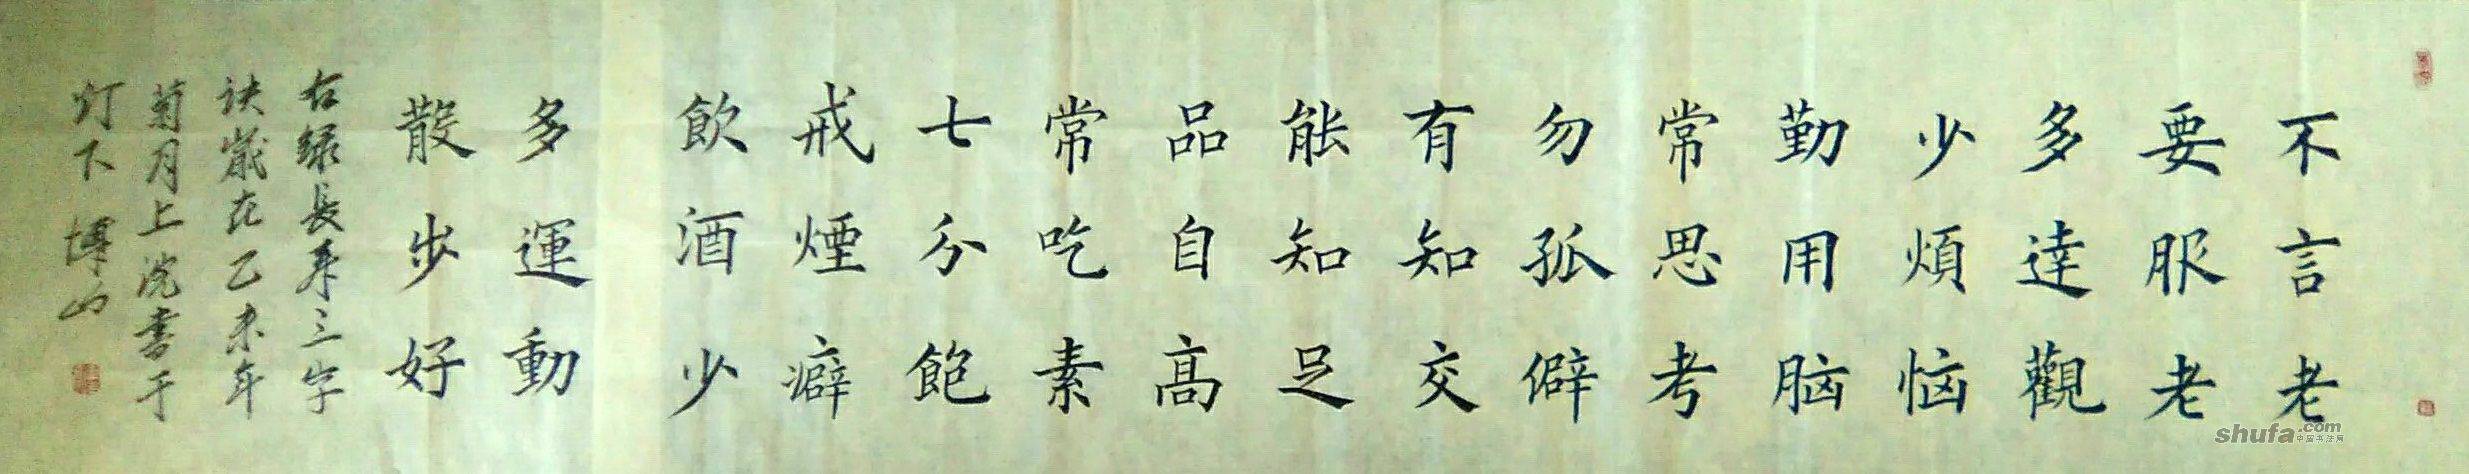 不言老
要服老
多達觀
少煩恼
勤用脑
常思考
勿孤僻
有知交
能知足
品自高
常吃素
七分飽
戒煙癖
飲酒少
多運動
散步好
右録長寿三字
诀歲在乙未年
菊月上浣書于
灯下 博山
shufa.com
中国书法网